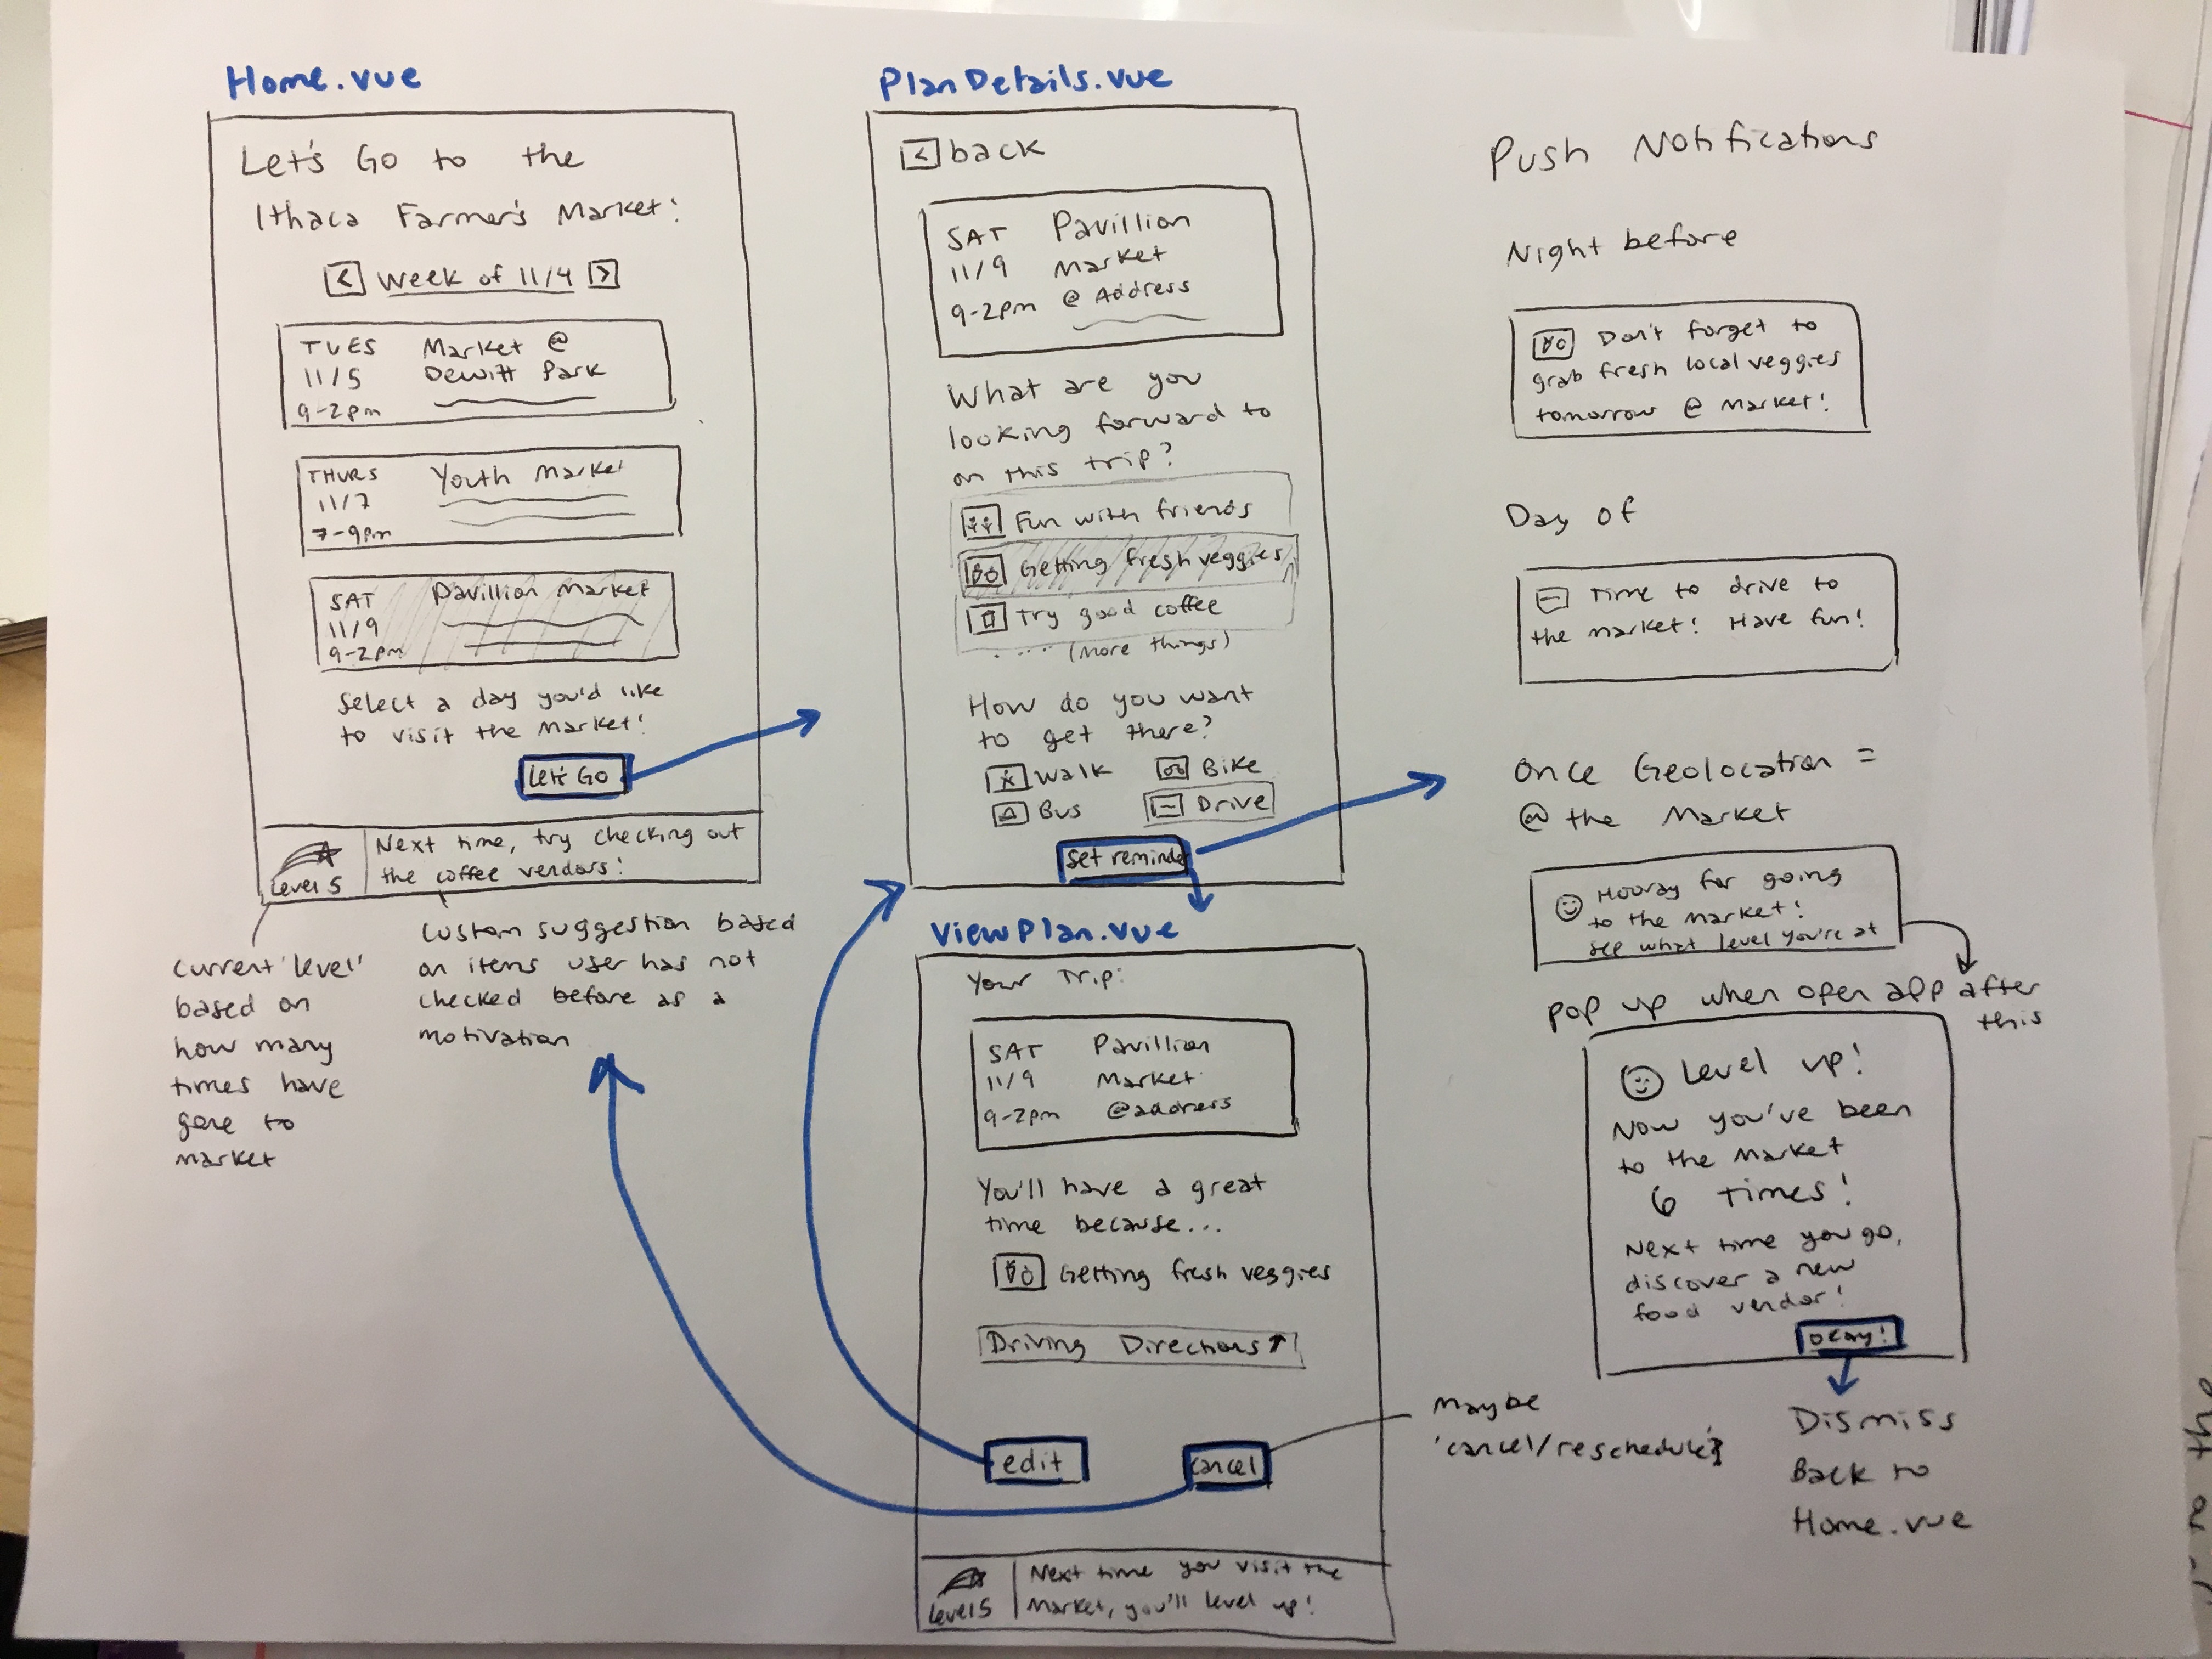 Home.vue
Let's Go to the
Ithaca Farmer's Market!
< Week of 11/4 >
TUES Market @
11/5 Dewitt Park
9-2pm
THURS Youth Market
11/7
7-9pm
SAT Pavillion Market
11/9
9-2pm
Select a day you'd like
to visit the market!
Let's Go
Level 5
Next time, try checking out
the coffee vendors!
current 'level'
based on
how many
times have
gone to
market
Custom suggestion based
on items user has not
checked before as a
motivation
PlanDetails.vue
< back
SAT Pavillion
11/9 Market
9-2pm @ Address
What are you
looking forward to
on this trip?
Fun with friends
Getting fresh veggies
Try good coffee
.... (more things)
How do you want
to get there?
Walk Bike
Bus Drive
Set reminder
ViewPlan.vue
Your Trip:
SAT Pavillion
11/9 Market
9-2pm @address
You'll have a great
time because...
Getting fresh veggies
Driving Directions
edit cancel
Level 5
Next time you visit the
Market, you'll level up!
Maybe
'cancel/reschedule'?
Push Notifications
Night before
Don't forget to
grab fresh local veggies
tomorrow @ market!
Day of
Time to drive to
the market! Have fun!
Once Geolocation =
@ the Market
Hooray for going
to the market!
see what level you're at
pop up when open app after
this
Level up!
Now you've been
to the market
6 times!
Next time you go,
discover a new
food vendor!
okay!
Dismiss
Back to
Home.vue